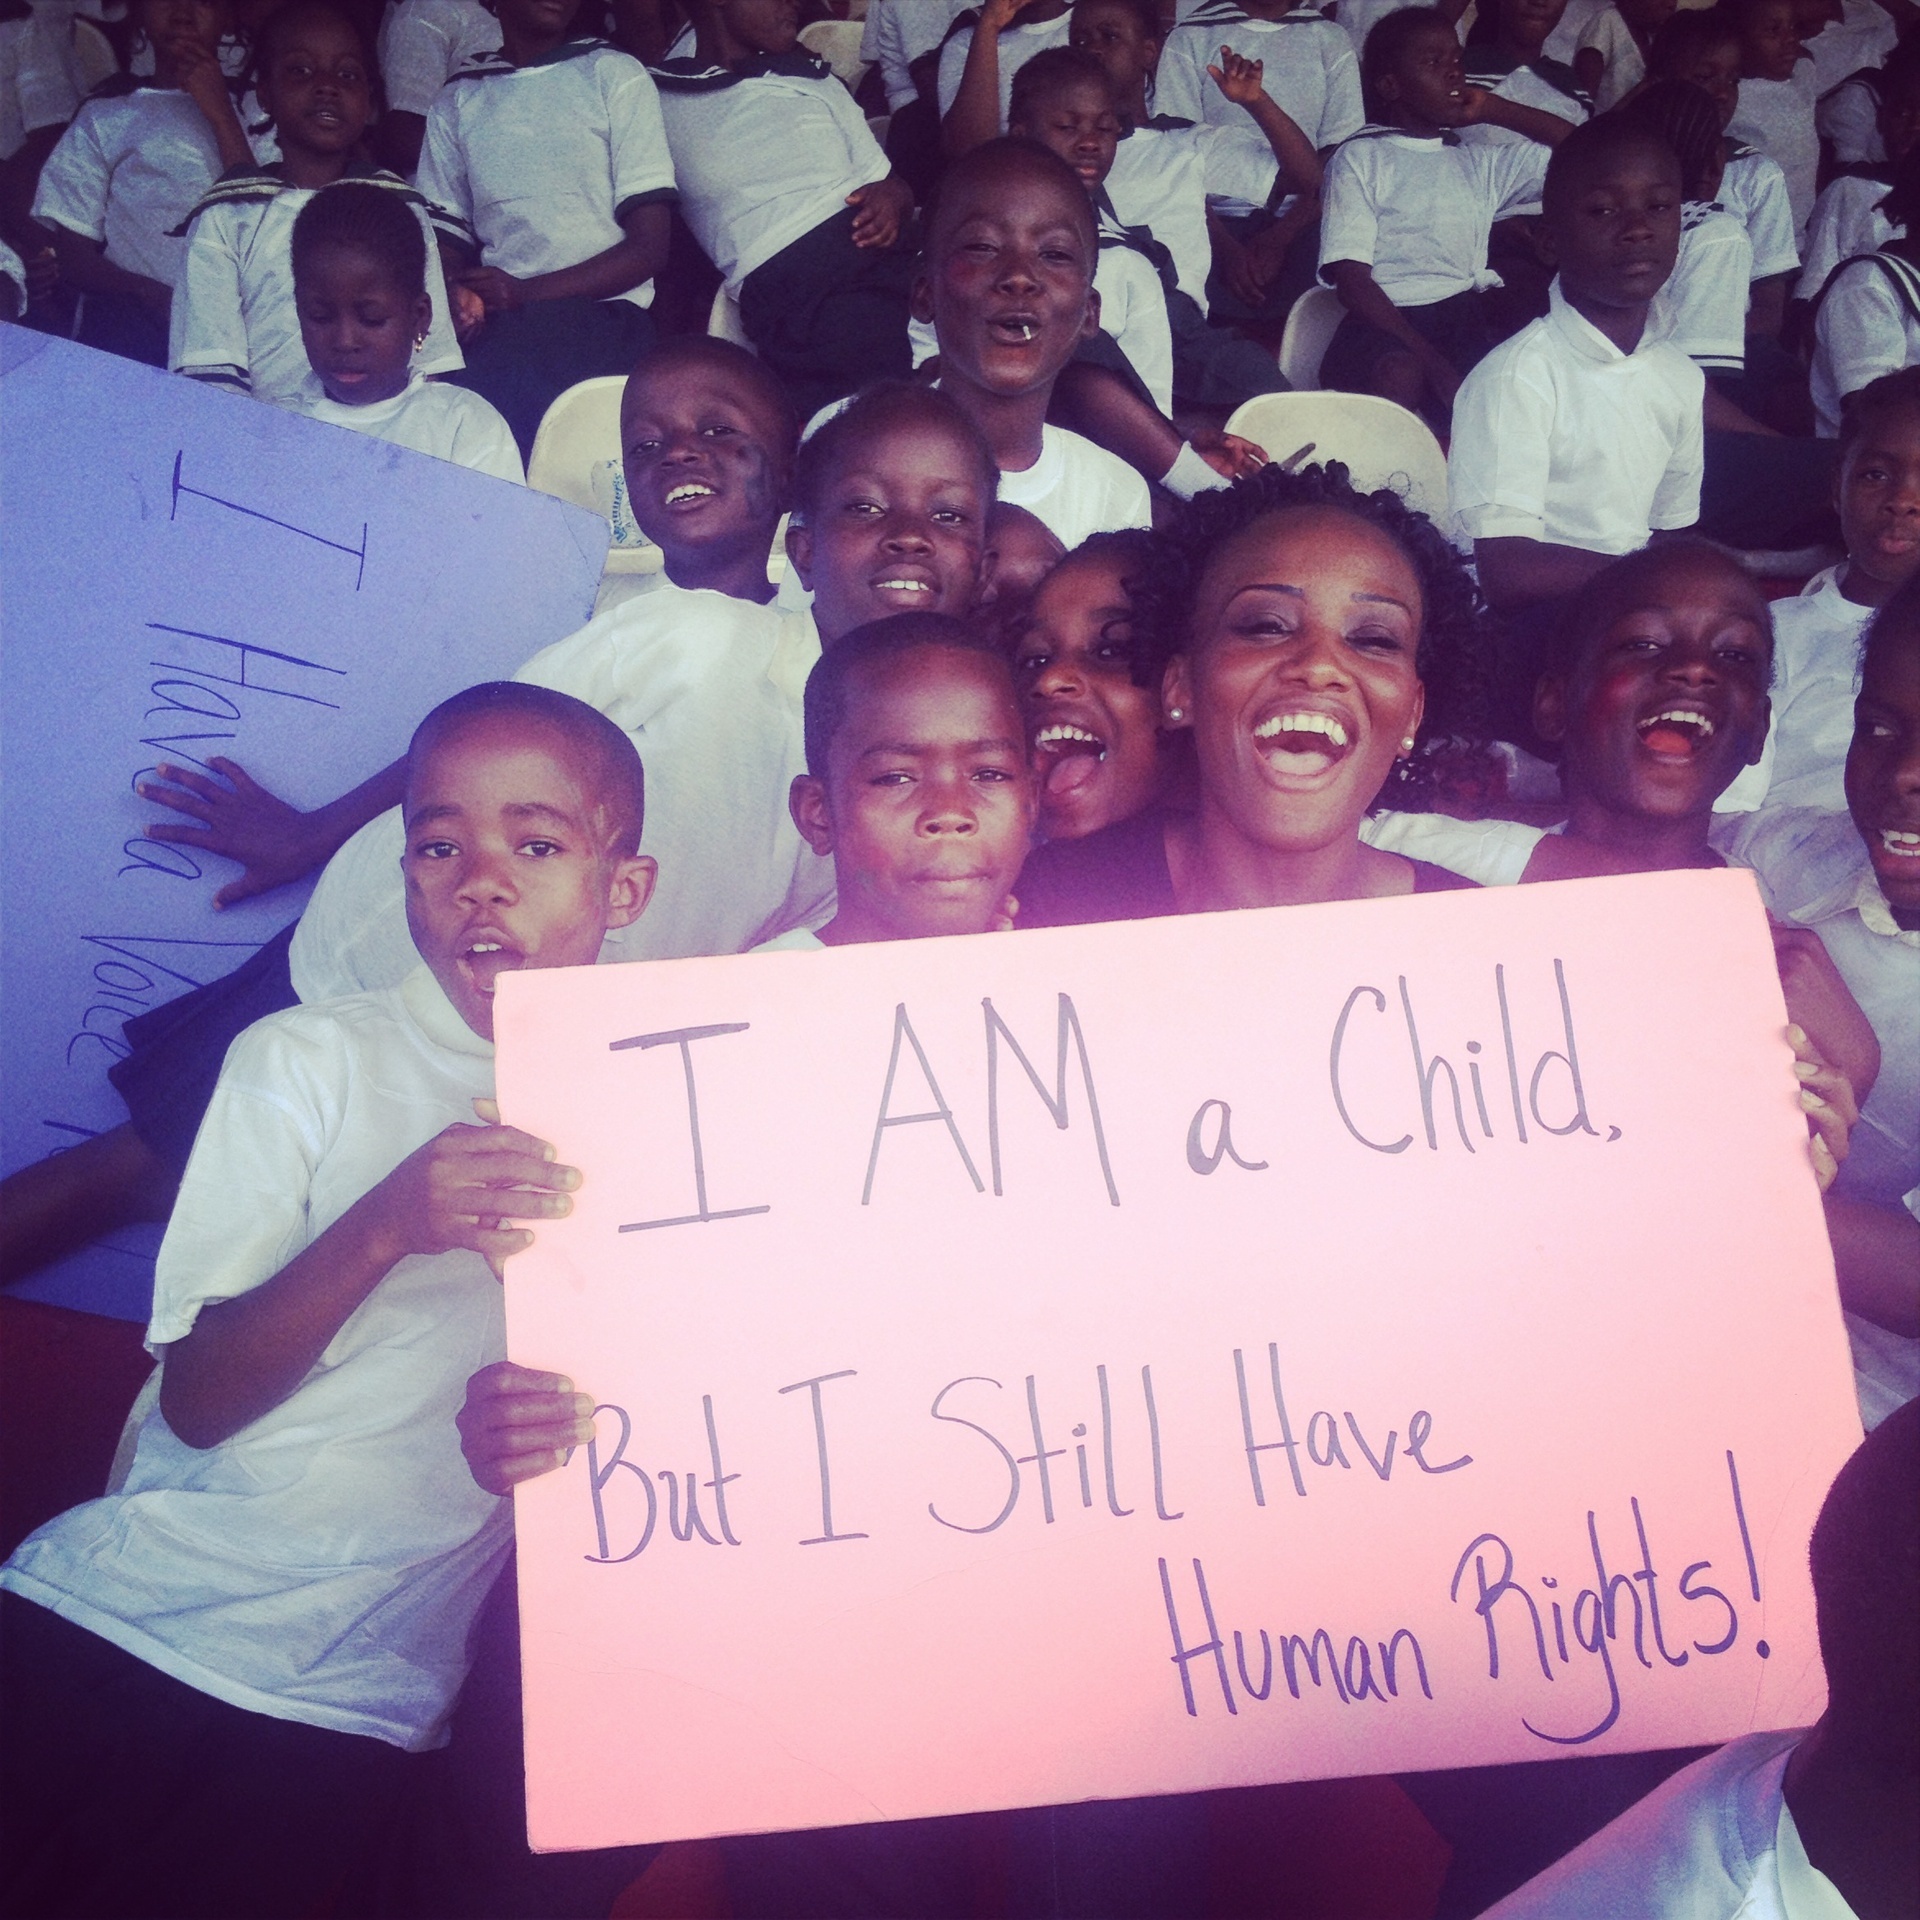 I Have a Voice
I AM a Child,
But I Still Have
Human Rights!